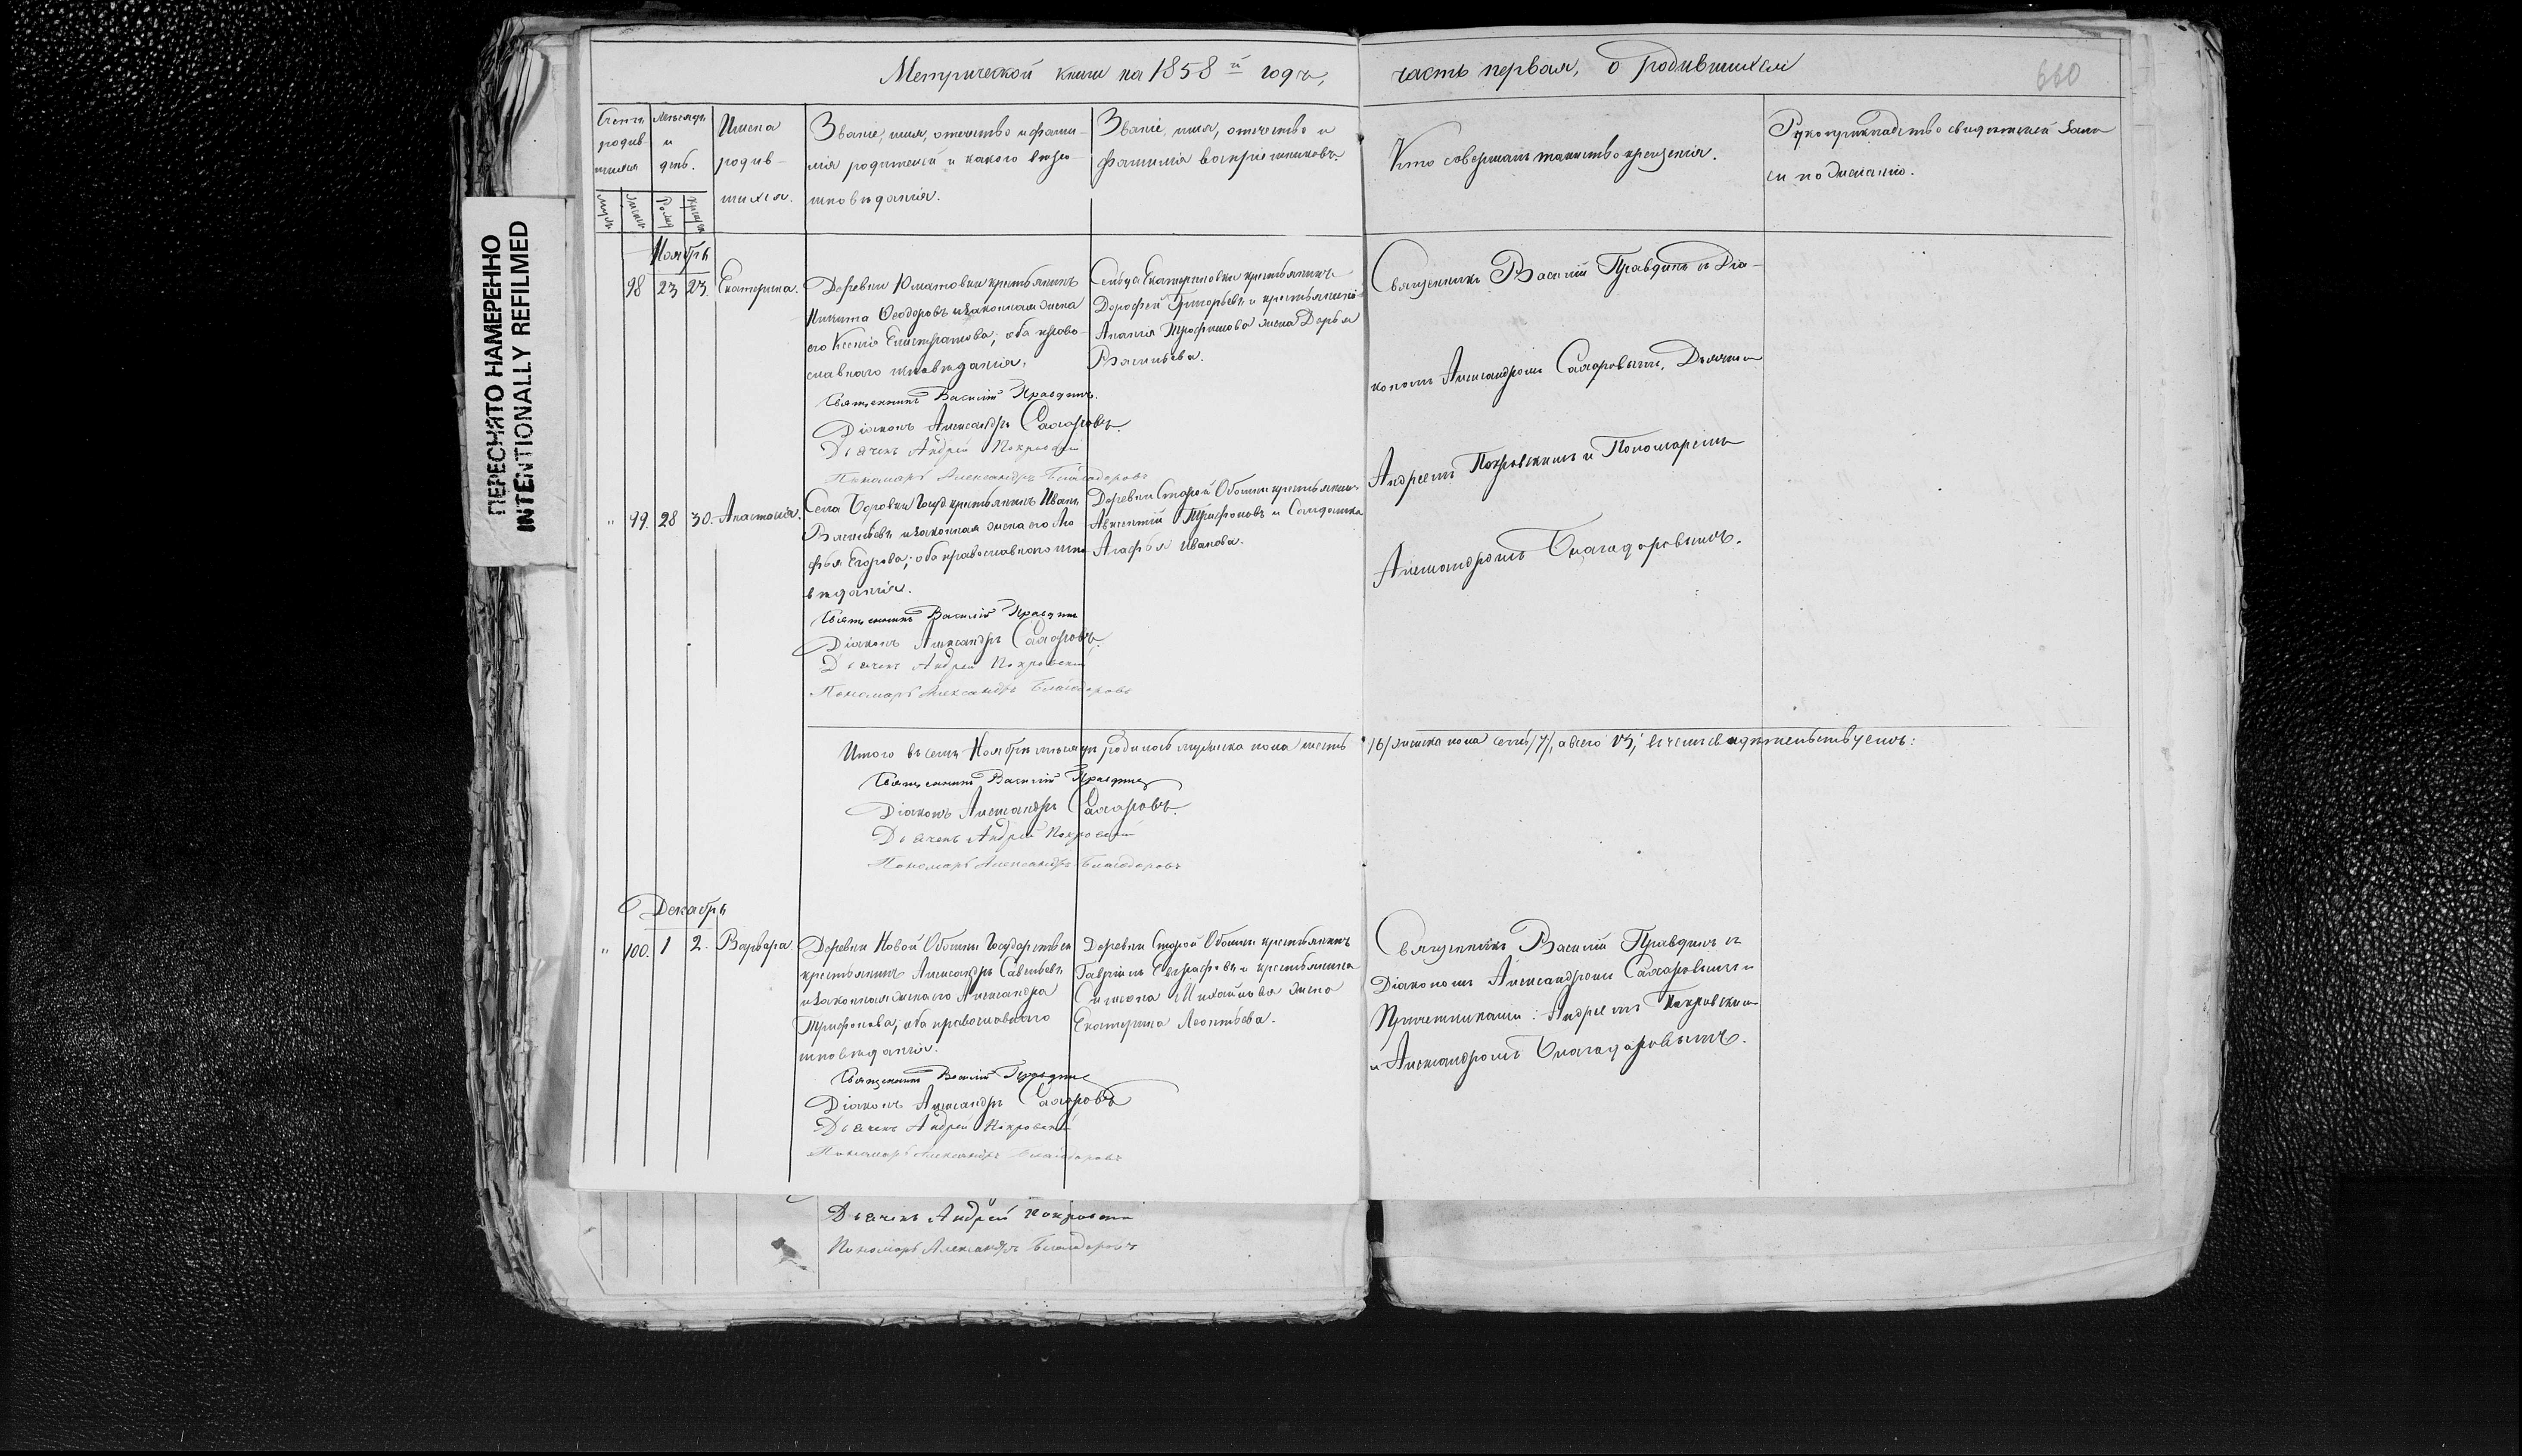 Метрической книги на 1858й годъ, часть первая, о родившихся
660
Счетъ родив-шихся
Мѣсяцъ и день.
Имена родив-шихся.
Званіе, имя, отчество и фами-
лія родителей и какого вѣро-
исповѣданія.
Званіе, имя, отчество и
фамилія воспріемниковъ.
Кто совершалъ таинство крещенія.
Рукоприкладство свидѣтелей записи по желанію.
ПЕРЕСНЯТО НАМЕРЕННО
INTENTIONALLY REFILMED
Ноябрь
98 23 23. Екатерина.
Деревни крестьянинъ
Никита Ѳеодоровъ и законная жена
его Ксенія, оба право-
славнаго исповѣданія.
Сельца Екатериновки крестьянинъ
Дорофей Григорьевъ и крестьянина
Трофимова жена Дарья
Васильева.
Священникъ Василій Правдинъ.
Діаконъ Александръ Сахаровъ.
Дьячекъ Андрей Покровскій
Пономарь Александръ Благодаровъ
Священникъ Василій Правдинъ съ Діа-
кономъ Александромъ Сахаровымъ, Дьячкомъ
Андреемъ Покровскимъ и Пономаремъ
Александромъ Благодаровымъ.
" 99. 28 30. Анастасія.
Села Госуд. крестьянинъ Иванъ
Васильевъ и законная жена его Ага-
фья Егорова; оба православнаго испо-
вѣданія.
Деревни Старой крестьянинъ
Авксентій Трифоновъ и Солдатка
Агафья Иванова.
Священникъ Василій Правдинъ
Діаконъ Александръ Сахаровъ.
Дьячекъ Андрей Покровскій
Пономарь Александръ Благодаровъ
Итого въ семъ Ноябрѣ мѣсяцѣ родилось мужеска пола шесть /6/ женска пола семь /7/, а всего 13; въ чемъ свидѣтельствуемъ:
Священникъ Василій Правдинъ
Діаконъ Александръ Сахаровъ.
Дьячекъ Андрей Покровскій
Пономарь Александръ Благодаровъ
Декабрь
" 100. 1 2. Варвара.
Деревни Новой Государствен.
крестьянинъ Александръ Савельевъ
и законная жена его Александра
Трифонова; оба православнаго
исповѣданія.
Деревни Старой крестьянинъ
Гавріилъ Евграфовъ и крестьянина
Симеона Михайлова жена
Екатерина Леонтьева.
Священникъ Василій Правдинъ
Діаконъ Александръ Сахаровъ
Дьячекъ Андрей Покровскій
Пономарь Александръ Благодаровъ
Священникъ Василій Правдинъ съ
Діакономъ Александромъ Сахаровымъ и
Причетниками: Андреемъ Покровскимъ
и Александромъ Благодаровымъ.
Дьячекъ Андрей Покровскій
Пономарь Александръ Благодаровъ